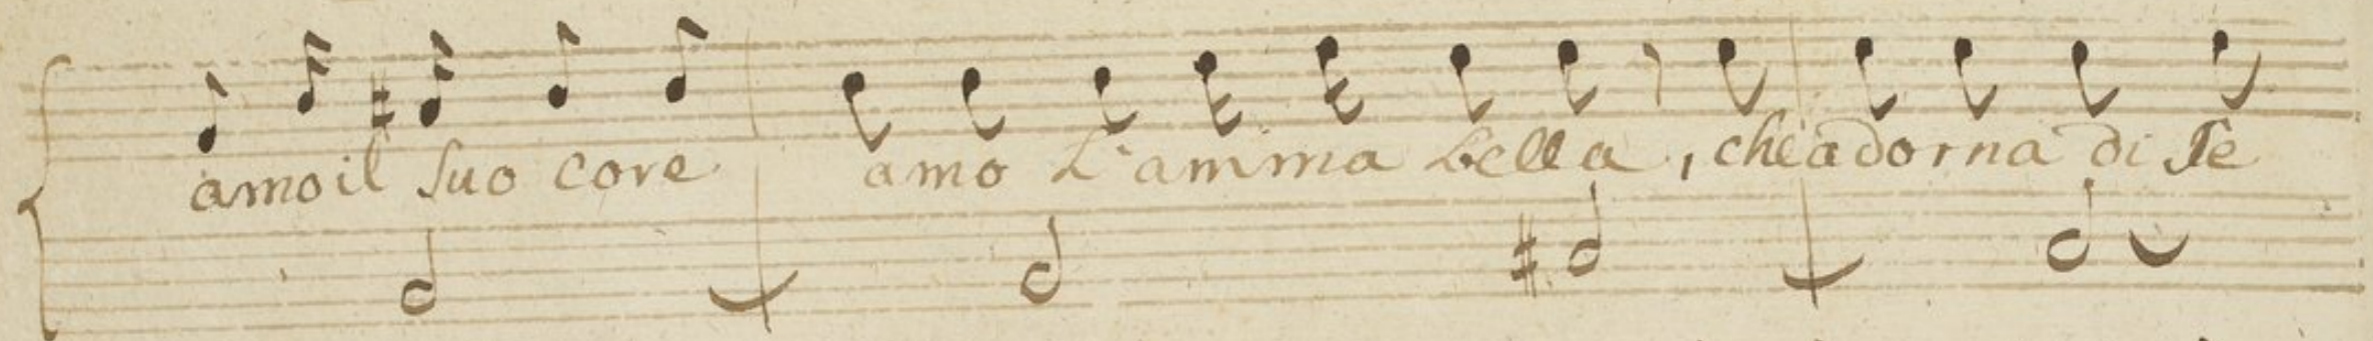 amo il suo core amo L'amma bella, che adorna di Fè